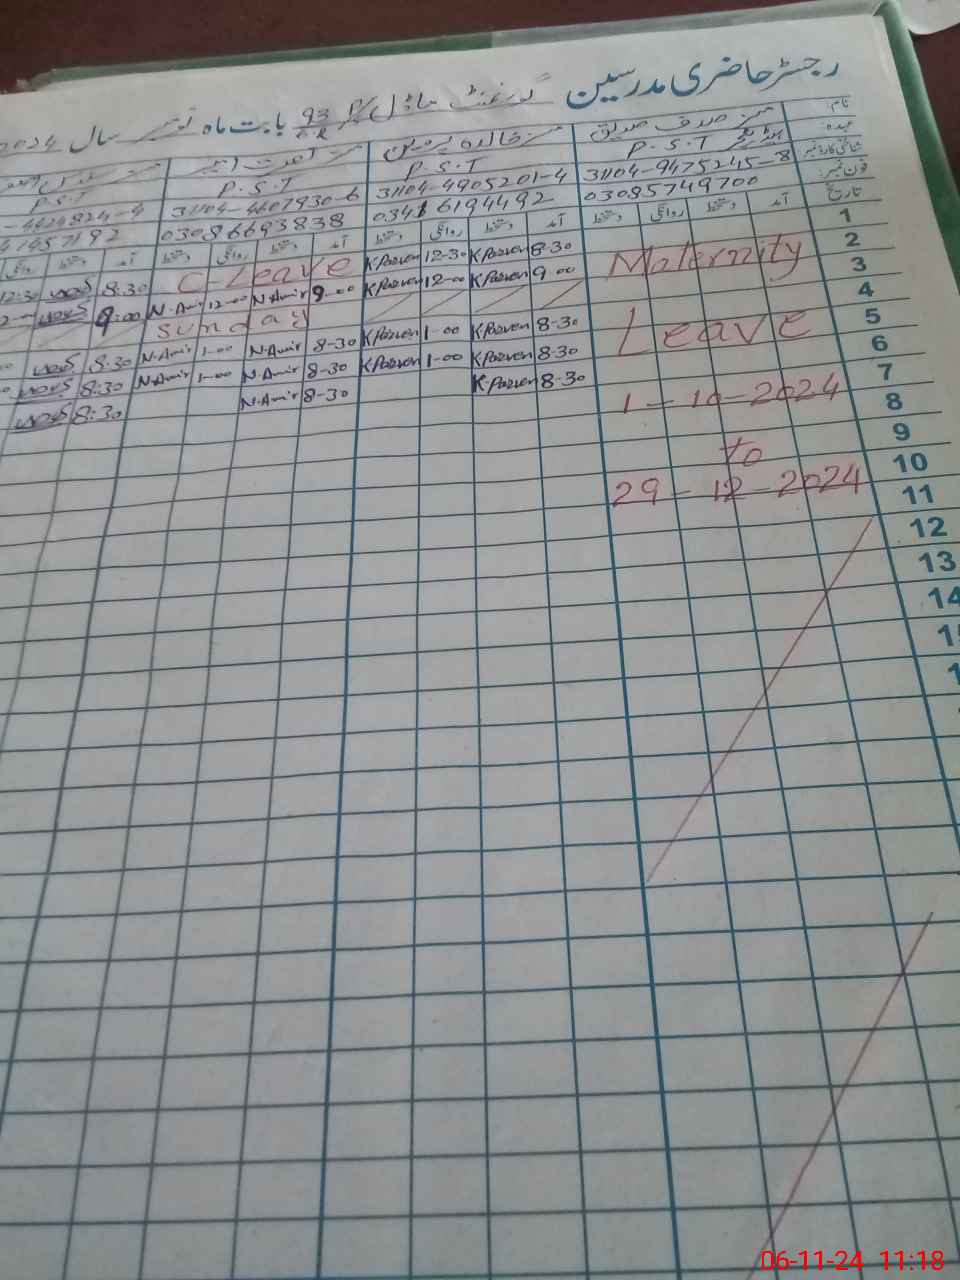 رجسٹر حاضری مدرسین گورنمنٹ ماڈل 93 بابت ماہ نومبر سال 2024
نام:
مسز صدف صدیق
مسز خالدہ پروین
عہدہ:
P.S.T
P.S.T
P.S.T
P.S.T
شناختی کارڈ نمبر:
31104-9475245-8
31104-4905201-4
31104-4607930-6
-4424824-4
فون نمبر:
03085749700
03416194492
03086693838
41457192
تاریخ آمد دستخط روانگی دستخط آمد دستخط روانگی دستخط آمد دستخط روانگی دستخط آمد دستخط روانگی
1 8-30 K Parven 12-30 K Parven C-Leave 8.30 12:30
2 Maternity 9-00 K Parven 12-00 K Parven 9-00 N.Amir 12-00 N.Amir 9:00
3 Sunday
4 Leave 8-30 K Parven 1-00 K Parven 8-30 N.Amir 1-00 N.Amir 8.30
5 8-30 K Parven 1-00 K Parven 8-30 N.Amir 1-00 N.Amir 8:30
6 8-30 K-Parven 8-30 N.Amir 8:30
7 1-10-2024
8
9 to
10 29-12-2024
11
12
13
14
06-11-24 11:18